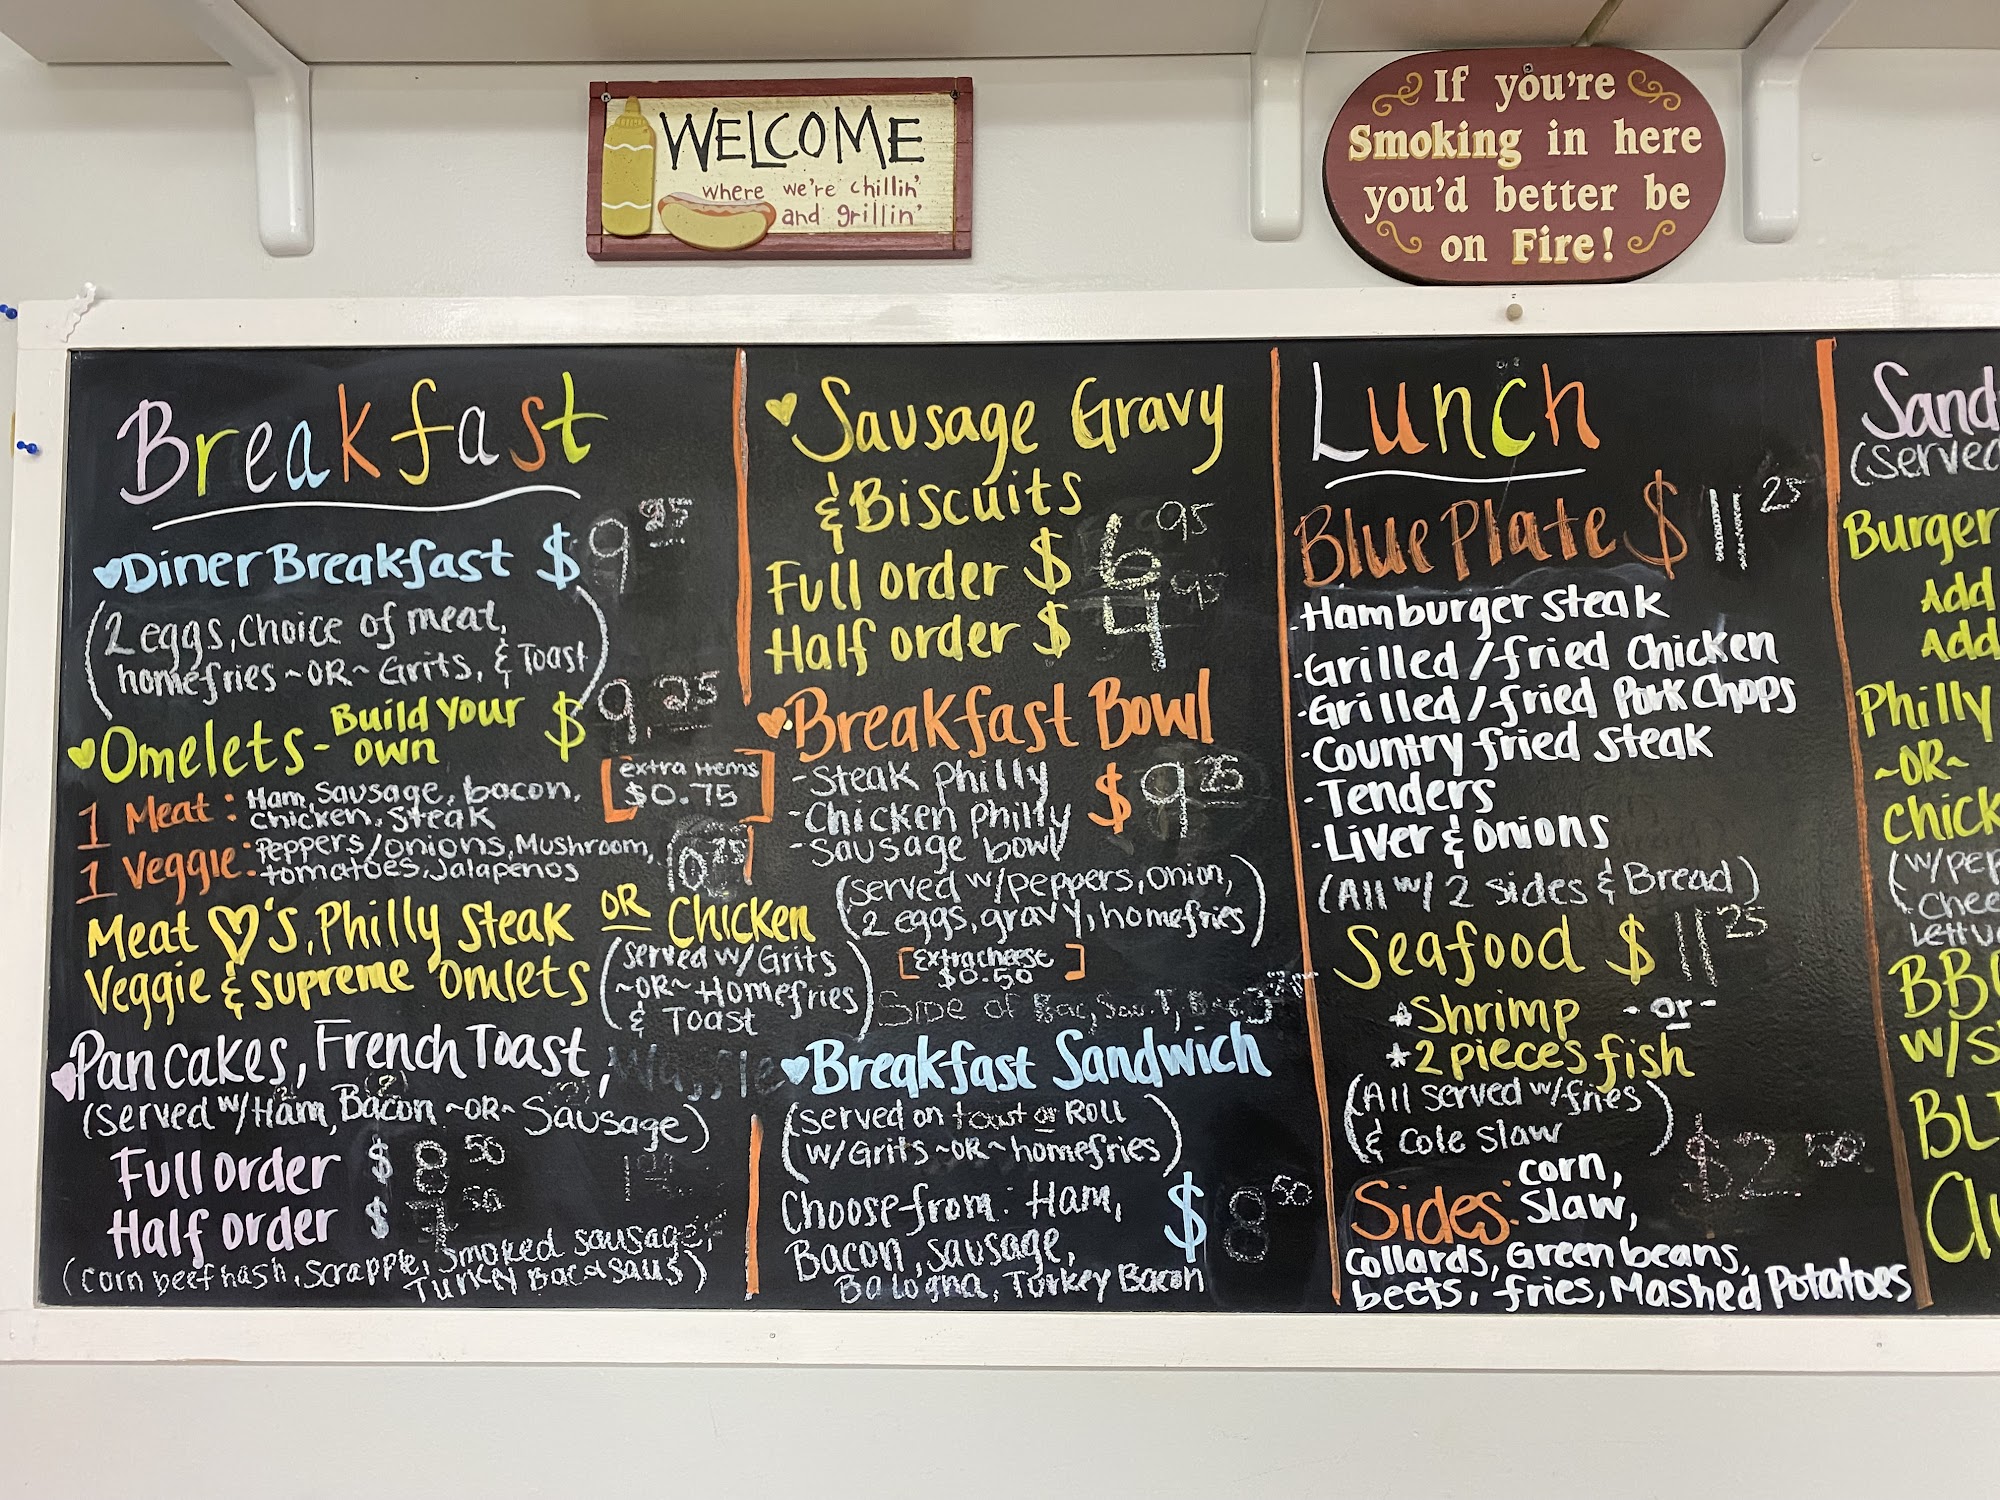 WELCOME
where we're chillin'
and grillin'
If you're
Smoking in here
you'd better be
on Fire!
Breakfast
Diner Breakfast $ 9 25
(2 eggs, Choice of meat,
homefries ~OR~ Grits, & Toast)
Omelets - Build your own $ 9.25
[extra items
$0.75]
1 Meat: Ham, Sausage, bacon,
chicken, Steak
1 Veggie: Peppers/onions, Mushroom,
tomatoes, Jalapenos
10 25
Meat ♡'s, Philly Steak OR Chicken
Veggie & Supreme Omlets
(served w/ Grits
~OR~ Homefries
& Toast)
Pancakes, French Toast, Waffle
(served w/ Ham, Bacon ~OR~ Sausage)
Full order $ 8 50
Half order $ 7 50
(corn beef hash, Scrapple, Smoked sausage,
Turkey Bac
Sausage Gravy
& Biscuits
Full order $ 6 95
Half order $ 4 95
Breakfast Bowl
- Steak Philly
- Chicken Philly
- Sausage bowl
$ 9 25
(served w/peppers, onion,
2 eggs, gravy, homefries)
[Extra cheese
$0.50]
Side of Bac, Sau.
Breakfast Sandwich
(served on toast or Roll
w/Grits ~OR~ homefries)
Choose from: Ham, $ 8 50
Bacon, sausage,
Bologna, Turkey Bacon
Lunch
Blue Plate $ 11 25
- Hamburger Steak
- Grilled/fried Chicken
- Grilled/fried Pork Chops
- Country fried steak
- Tenders
- Liver & onions
(All w/ 2 sides & Bread)
Seafood $ 11 25
*Shrimp -or-
*2 pieces fish
(All served w/fries
& Cole Slaw)
Sides: corn, $2.50
Slaw,
Collards, Green beans,
beets, fries, Mashed Potatoes
Sand
(served
Burger
Add
Add
Philly
~OR~
Chick
(w/pep
Chee
Lettu
BB
w/s
BL
Clu